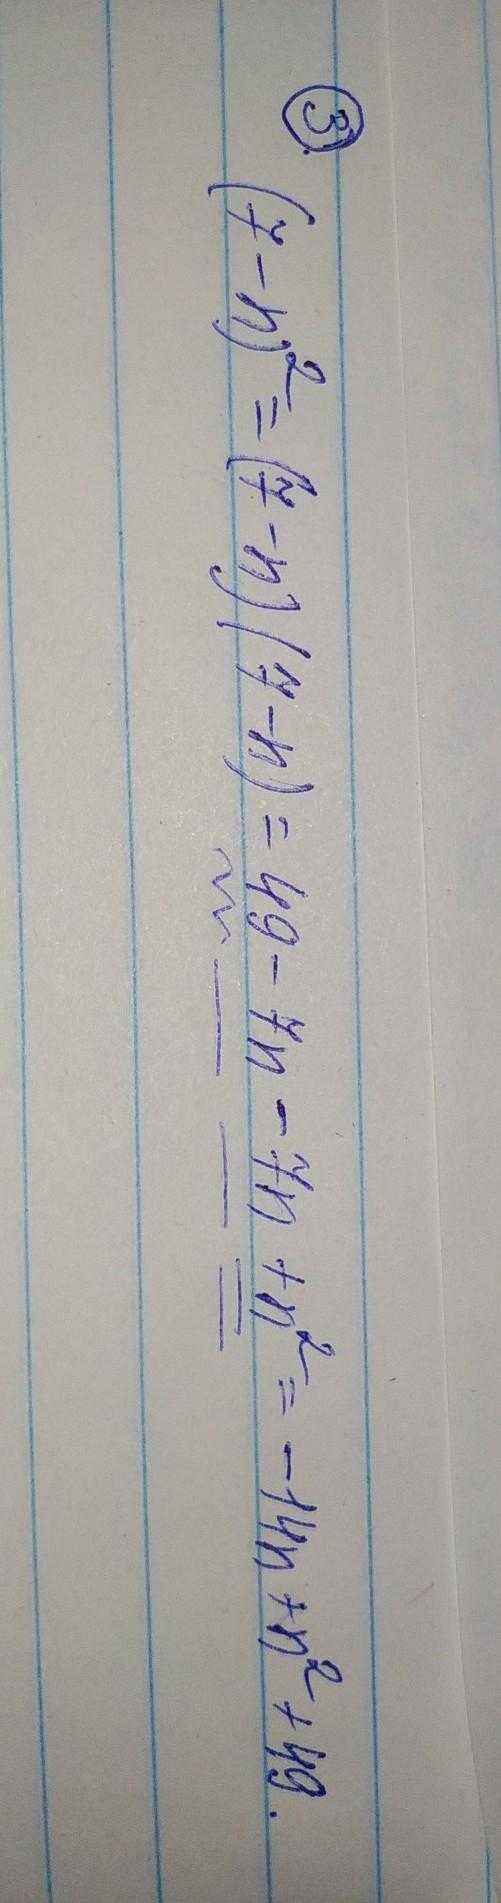 ③. (7-n)² = (7-n)(7-n) = 49 - 7n - 7n + n² = -14n + n² + 49.